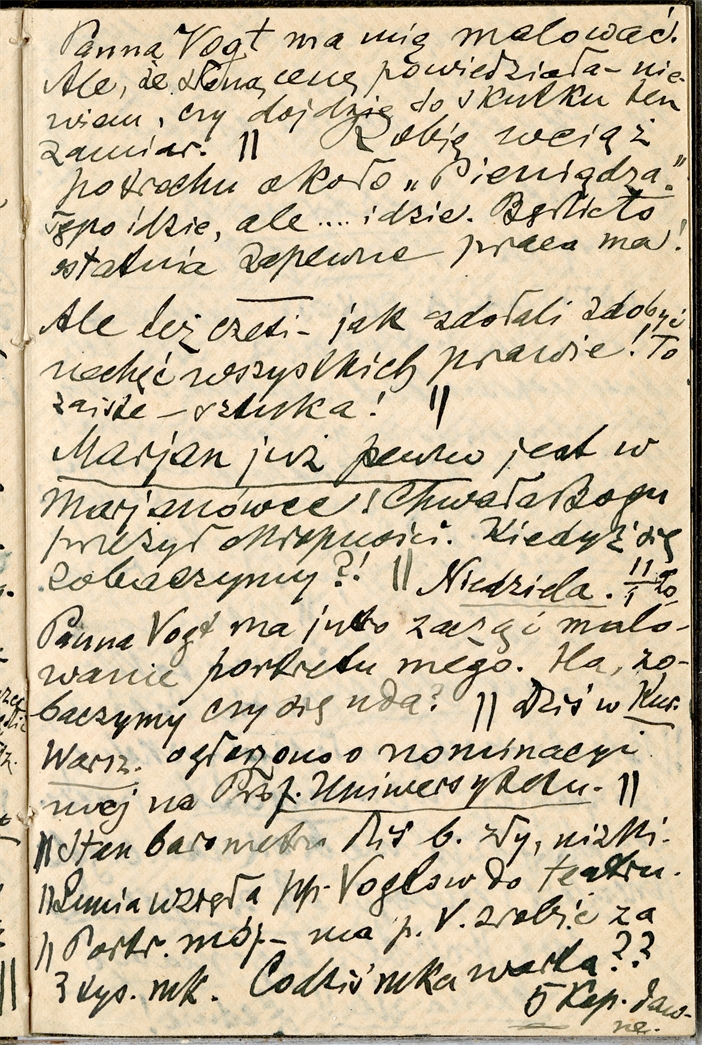 Panna Vogt ma mię malować.
Ale, że słoną cenę powiedziała – nie-
wiem, czy dojdzie do skutku ten
zamiar. || Robię wciąż
potrochu około „Pieniądza."
Tępo idzie, ale .... idzie. Będzie to
ostatnia zapewne praca ma!
Ale też czesi – jak zdołali zdobyć
niechęć wszystkich prawie! To
zaiste – sztuka! ||
Marjan już pewno jest w
Marjanówce! Chwała Bogu
przeżył okropności. Kiedyż się
zobaczymy?! || Niedziela. 11/1
Panna Vogt ma jutro zacząć malo-
wanie portretu mego. Ha, zo-
baczymy czy się uda? || Dziś w Kur.
Warsz. ogłoszono o nominacyi
mej na Prof. Uniwersytetu. ||
|| Stan barometru dziś b. zły, nizki.
|| Lunia wzięła pp. Vogtów do teatru.
|| Portr. mój – ma p. V. zrobić za
3 tys. mk. Co dziś mka warta??
5 kop. daw-
ne.